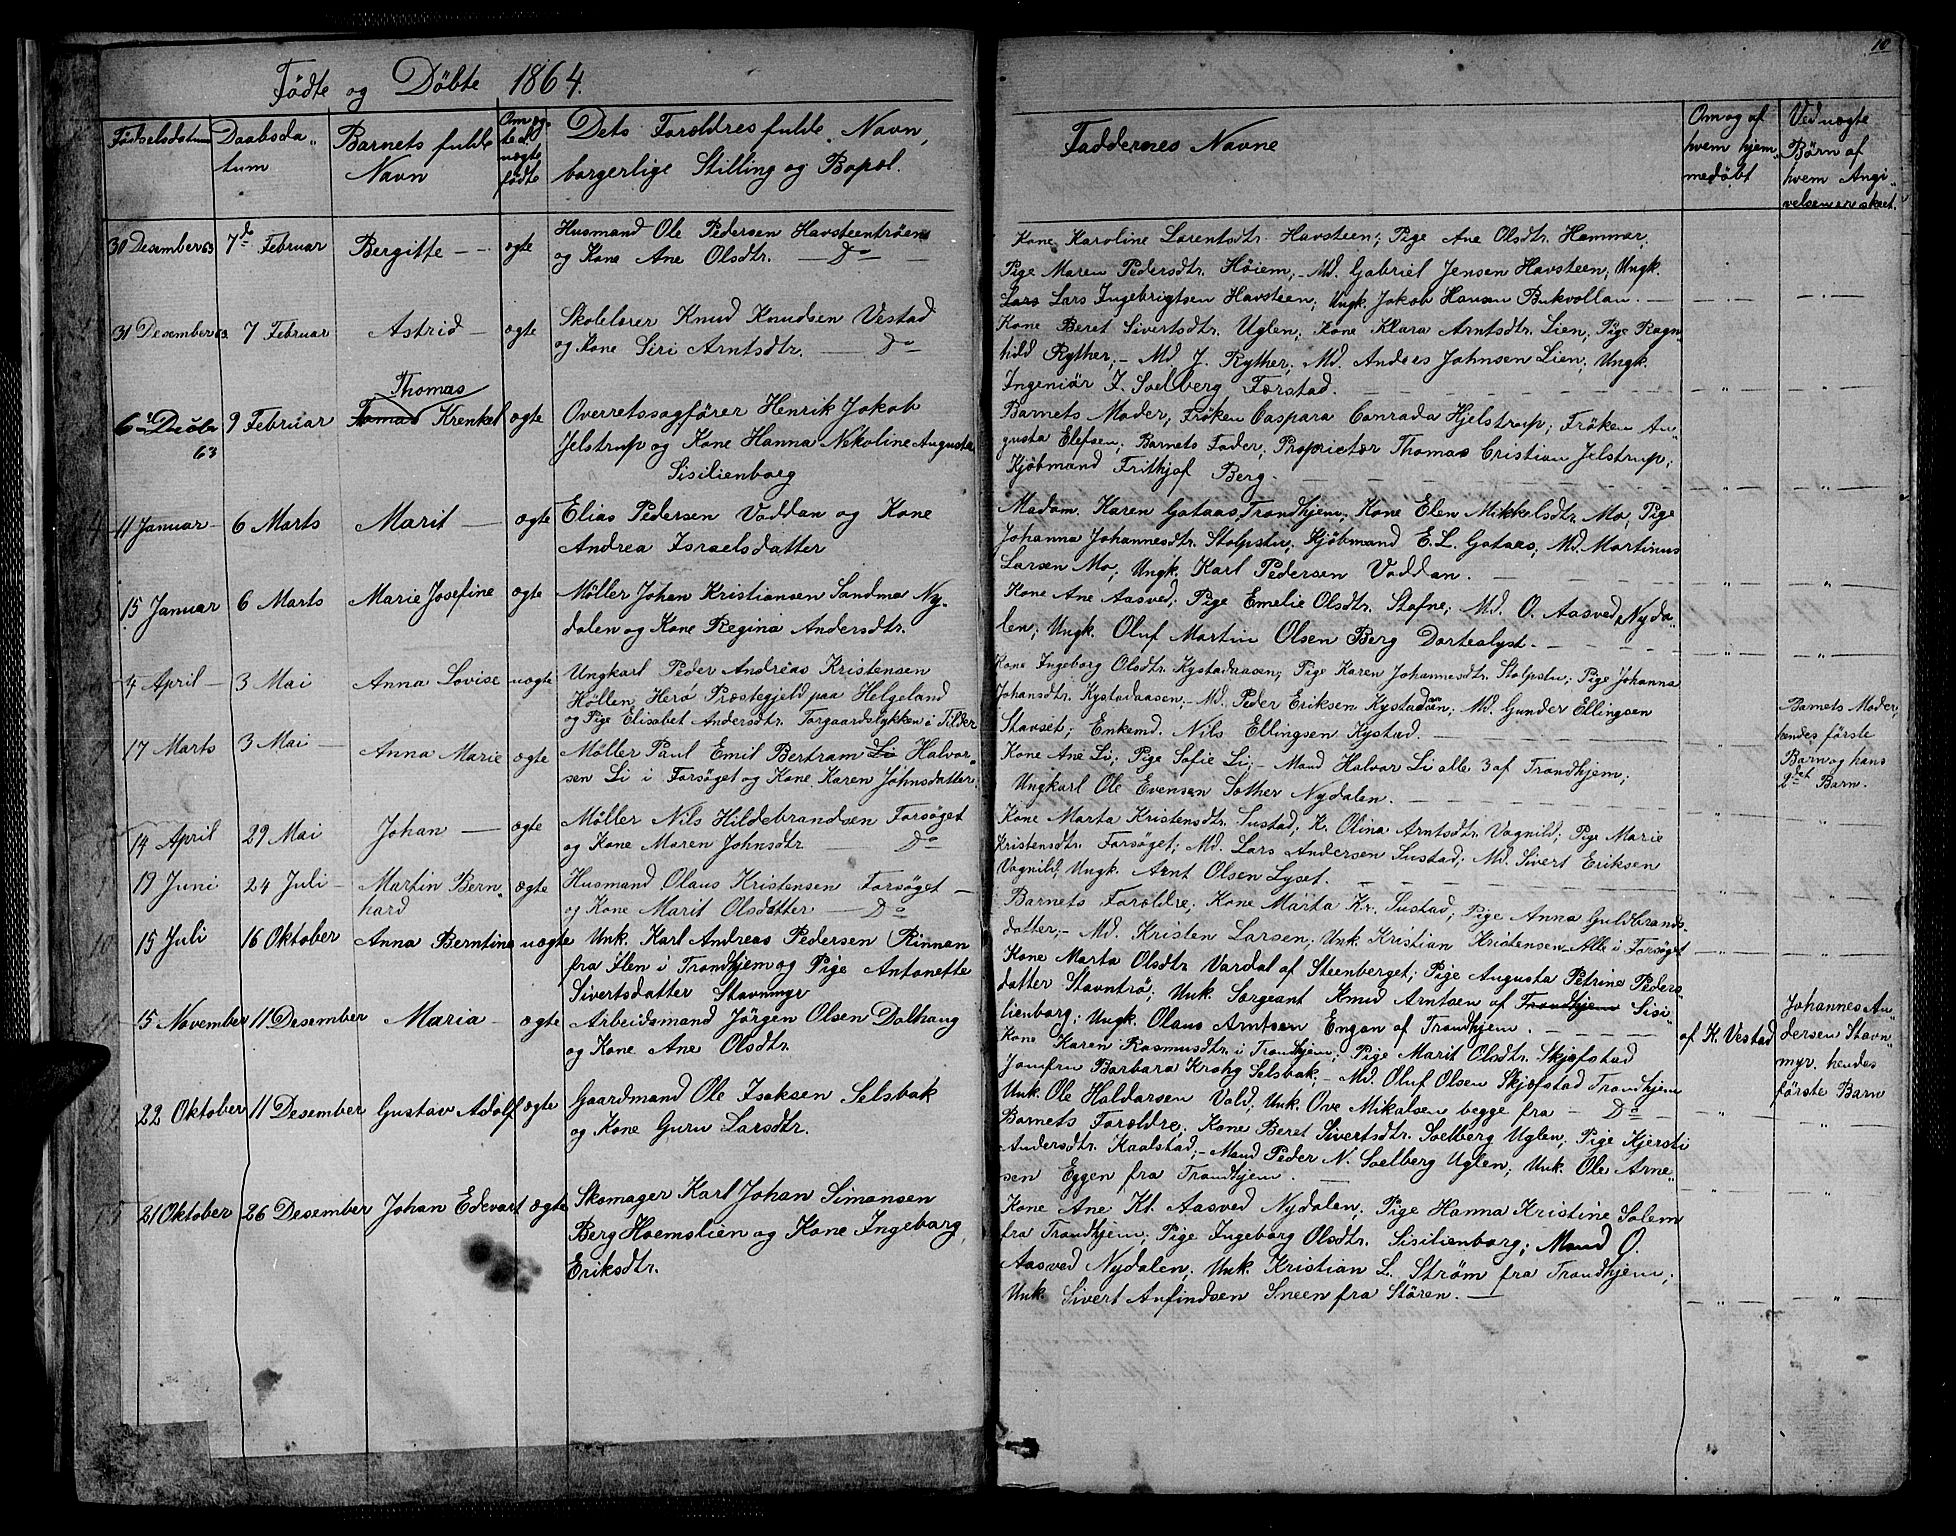 10
Fødte og Døbte 1864.
Fødselsdatum
Daabsda„
tum
Barnets fulde
Navn
Om æg-
te el.
uægte
fødte
Dets Forældres fulde Navn,
borgerlige Stilling og Bopæl.
Faddernes Navne
Om og af
hvem hjem„
medøbt
Ved uægte
Børn af
hvem Angi„
velsen er skeet.
30 Desember 63 7de Februar Bergitte — ægte Husmand Ole Pedersen Havsteentrøen
og Kone Ane Olsdtr. — Do —
Kone Karoline Larentsdtr. Havsteen; Pige Ane Olsdtr. Hammer,
Pige Maren Pedersdtr. Høiem; - Md. Gabriel Jensen Havsteen; Ungk.
Lars Lars Ingebrigtsen Havsteen; Ungk. Jokob Hansen Bukvollan. —
31 Desember 63. 7 Februar Astrid — ægte Skolelærer Knud Knudsen Vestad
og Kone Siri Arntsdtr. — Do
Kone Beret Sivertsdtr. Uglen; Kone Klara Arntsdtr. Lien; Pige Ragn„
hild Ryther, - Md. J. Ryther; Md. Anders Johnsen Lien; Ungk.
Ingeniør F. Solberg Forstad. —
Thomas
6 63 9 Februar Tomas Krenkel ægte Overretssagfører Henrik Jokob
Jelstrup og Kone Hanna Nekoline Augusta
Sisilienborg
Barnets Moder, Frøken Caspara Conrada Hjelstrup; Frøken Au„
gusta Elefsen; Barnets Fader; Proprietær Thomas Cristian Jelstrup;
Kjøbmand Frithjof Berg. —
11 Januar — 6 Marts Marit — ægte Elias Pedersen Voddan og Kone
Andrea Israelsdatter
Madam. Karen Gataas Trondhjem; Kone Elen Mikkelsdtr. Mo, Pige
Johanna Johannesdtr. Stolpstu, Kjøbmand E. L. Gataas; Md. Martinus
Larsen Mo; Ungk. Karl Pedersen Voddan. —
15 Januar 6 Marts Marie Josefine ægte Møller Johan Kristiansen Sandmo Ny-
dalen og Kone Regina Andersdtr.
Kone Ane Aasved; Pige Emelie Olsdtr. Stafne; Md. O. Aasved Nyda„
len; Ungk. Oluf Martin Olsen Berg Dortealyst. —
4 April — 3 Mai Anna Lovise uægte Ungkarl Peder Andreas Kristensen
Høllen Herø Præstegjeld paa Helgeland
og Pige Elisabet Andersdtr. Torgaardslykken i Tilder
Kone Ingeborg Olsdtr. Kystadaasen; Pige Karen Johannesdtr. Stolpstu; Pige Johanna
Johansdtr. Kystadaasen; - Md. Peder Eriksen Kystadaasen; Md. Gunder Ellingsen
Stavset; Enkemd. Nils Ellingsen Kystad. —
Barnets Moder;
hendes første
Barn og hans
2det Barn.
17 Marts 3 Mai — Anna Marie ægte Møller Paul Emil Bertram Li Halvor„
sen Li i Forsøget og Kone Karen Johnsdatter
Kone Ane Li; Pige Sofie Li; - Mand Halvor Li alle 3 af Trondhjem;
Ungkarl Ole Evensen Sother Nydalen. —
14 April 29 Mai Johan — ægte Møller Nils Hildebrandsen Forsøget
og Kone Maren Johnsdtr — Do
Kone Marta Kristensdtr. Sustad; K. Olina Arntsdtr. Vognild; Pige Marie
Kristensdtr. Forsøget; Md. Lars Andersen Sustad; Md. Sivert Eriksen
Vognild, Ungk. Arnt Olsen Lyset. —
19 Juni 24 Juli — Martin Bern„
hard ægte Husmand Olaus Kristensen Forsøget —
og Kone Marit Olsdatter — Do
Barnets Forældre; Kone Marta Kr. Sustad; Pige Anna Guldbrands„
datter; - Md. Kristen Larsen; Unk. Kristian Kristensen - Alle i Forsøget
10 15 Juli 16 Oktober Anna Berntine uægte Unk. Karl Andreas Pedersen Rinnan
fra Ilen i Trondhjem og Pige Antonette
Sivertsdatter Stavnmyr
Kone Marta Olsdtr Vardal af Steenberget; Pige Augusta Petrine Peders„
datter Stavntrø; Unk. Sergeant Knud Arntsen af Trondhjem Sisi„
lienborg; Ungk. Olaus Arntsen Engan af Trondhjem. —
Johannes An„
dersen Stavn„
myr, hendes
første Barn
15 November 11 Desember Maria — ægte Arbeidsmand Jørgen Olsen Dalhaug
og Kone Ane Olsdtr.
Kone Karen Rasmusdtr. i Trondhjem; Pige Marit Olsdtr. Skjefstad
Jomfru Barbara Krohg Selsbak, - Md. Oluf Olsen Skjefstad Trondhjem
Unk. Ole Haldarsen Vold; Unk. Ove Mikalsen begge fra — Do —
af K. Vestad
22 Oktober 11 Desember Gustav Adolf ægte Gaardmand Ole Isaksen Selsbak
og Kone Guru Larsdtr.
Barnets Forældre; Kone Beret Sivertsdtr. Solberg Uglen; Pige Kjersti
Andersdtr. Kaalstad; - Mand Peder N. Solberg Uglen; Unk. Ole Arne„
sen Eggen fra Trondhjem. —
21 Oktober 26 Desember Johan Edevart ægte Skomager Karl Johan Simonsen
Berg Hoemslien og Kone Ingeborg
Eriksdtr.
Kone Ane Kl. Aasved Nydalen; Pige Hanna Kristine Solem
fra Trondhjem; Pige Ingeborg Olsdtr. Sisilienborg; Mand O.
Aasved Nydalen; Unk. Kristian L. Strøm fra Trondhjem,
Unk. Sivert Anfindsen Sneen fra Støren. —